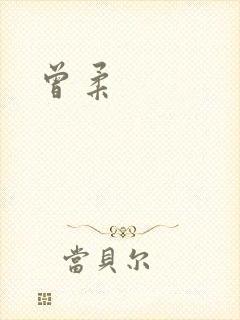 曾柔
當貝尔